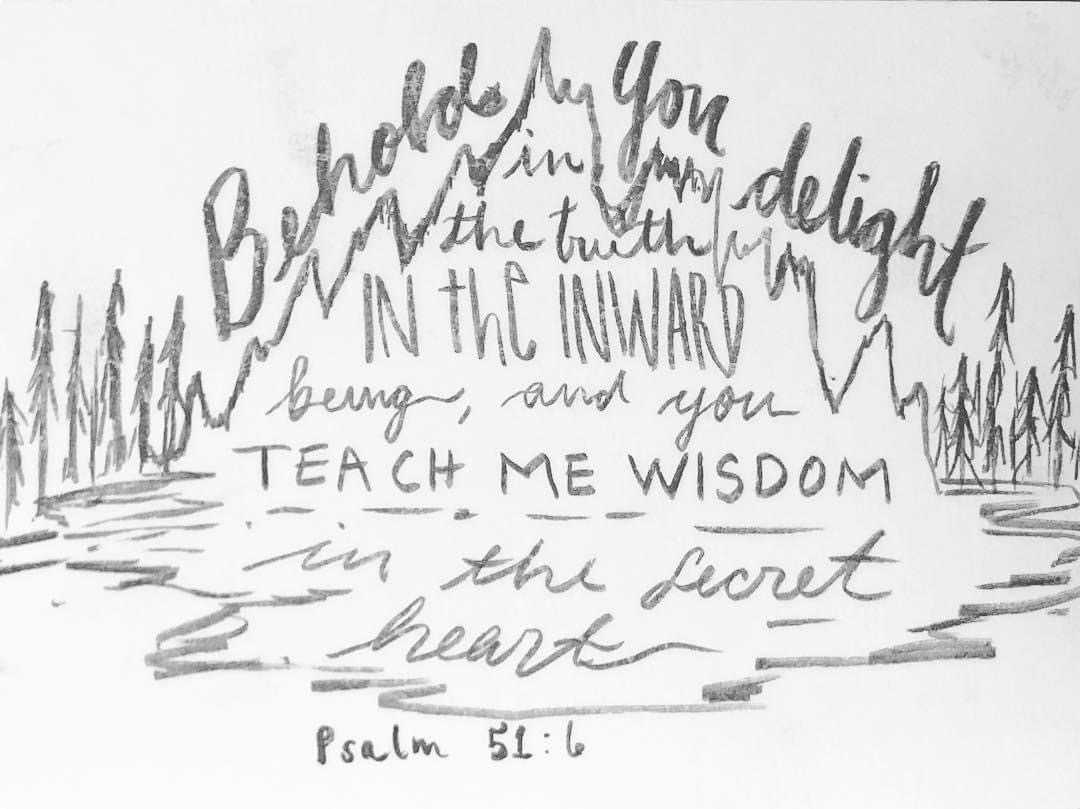 Behold, you delight
in
the truth
IN the INWARD
being, and you
TEACH ME WISDOM
in the secret
heart
Psalm 51:6